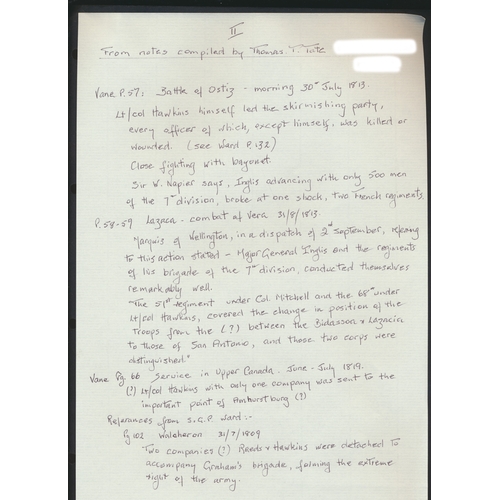 II
From notes compiled by Thomas T. Tute
Vane P.57: Battle of Ostiz - morning 30th July 1813.
Lt/col Hawkins himself led the skirmishing party,
every officer of which, except himself, was killed or
wounded. (see Ward P.132)
Close fighting with bayonet
Sir W. Napier says, Inglis advancing with only 500 men
of the 7th division, broke at one shock, two French regiments.
P.58-59 Lazaca - combat of Vera 31/8/1813.
Marquis of Wellington, in a dispatch of 2nd September, refering
to this action stated - Major General Inglis and the regiments
of his brigade of the 7th division, conducted themselves
remarkably well.
"The 51st regiment under Col. Mitchell and the 68th under
Lt/col Hawkins, covered the change in position of the
troops from the (?) between the Bidassoa & Lazacia
to those of San Antonio, and those two corps were
distinguished."
Vane Pg 66 Service in Upper Canada. June - July 1819.
(?) Lt/col Hawkins with only one company was sent to the
important point of Amhurstburg (?)
References from S.G.P. Ward:-
Pg 102 Walcheron 31/7/1809
Two companies (?) Reeds & Hawkins were detached to
accompany Graham's brigade, forming the extreme
right of the army.